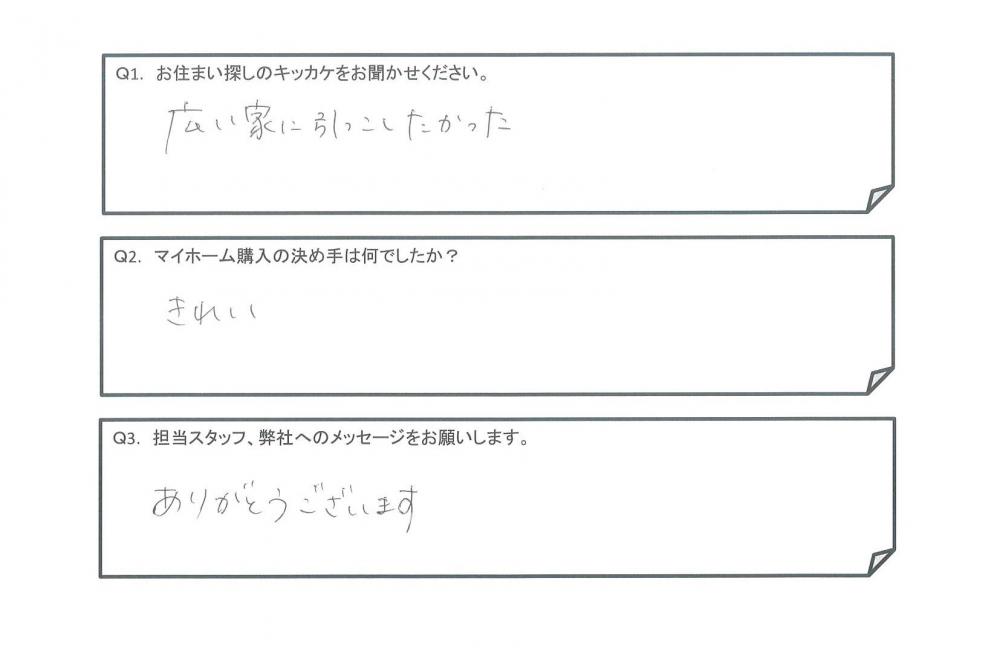 Q1. お住まい探しのキッカケをお聞かせください。
広い家に引っこしたかった
Q2. マイホーム購入の決め手は何でしたか？
きれい
Q3. 担当スタッフ、弊社へのメッセージをお願いします。
ありがとうございます